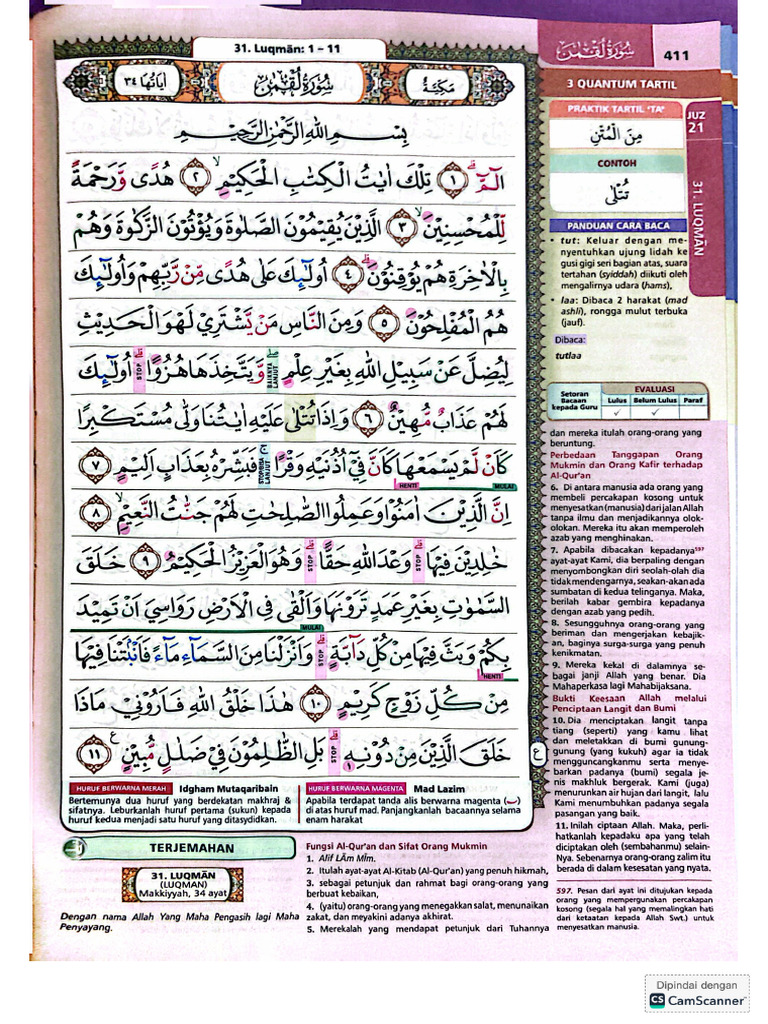 31. Luqmān: 1 – 11
سُوْرَةُ لُقْمٰنَ
411
اٰيَاتُهَا ٣٤
سُوْرَةُ لُقْمٰنَ
مَكِّيَّةٌ
بِسْمِ اللّٰهِ الرَّحْمٰنِ الرَّحِيْمِ
الۤمّۤ ۗ ﴿١﴾ تِلْكَ اٰيٰتُ الْكِتٰبِ الْحَكِيْمِۙ ﴿٢﴾ هُدًى وَّرَحْمَةً
لِّلْمُحْسِنِيْنَۙ ﴿٣﴾ الَّذِيْنَ يُقِيْمُوْنَ الصَّلٰوةَ وَيُؤْتُوْنَ الزَّكٰوةَ وَهُمْ
بِالْاٰخِرَةِ هُمْ يُوْقِنُوْنَۗ ﴿٤﴾ اُولٰۤىِٕكَ عَلٰى هُدًى مِّنْ رَّبِّهِمْ وَاُولٰۤىِٕكَ
هُمُ الْمُفْلِحُوْنَ ﴿٥﴾ وَمِنَ النَّاسِ مَنْ يَّشْتَرِيْ لَهْوَ الْحَدِيْثِ
لِيُضِلَّ عَنْ سَبِيْلِ اللّٰهِ بِغَيْرِ عِلْمٍۖ وَّيَتَّخِذَهَا هُزُوًاۗ اُولٰۤىِٕكَ
BAIKNYA LANJUT
STOP
لَهُمْ عَذَابٌ مُّهِيْنٌ ﴿٦﴾ وَاِذَا تُتْلٰى عَلَيْهِ اٰيٰتُنَا وَلّٰى مُسْتَكْبِرًا
كَاَنْ لَّمْ يَسْمَعْهَا كَاَنَّ فِيْٓ اُذُنَيْهِ وَقْرًاۚ فَبَشِّرْهُ بِعَذَابٍ اَلِيْمٍ ﴿٧﴾
HENTI
STOP/BISA LANJUT
MULAI
اِنَّ الَّذِيْنَ اٰمَنُوْا وَعَمِلُوا الصّٰلِحٰتِ لَهُمْ جَنّٰتُ النَّعِيْمِۙ ﴿٨﴾
خٰلِدِيْنَ فِيْهَاۗ وَعْدَ اللّٰهِ حَقًّاۗ وَهُوَ الْعَزِيْزُ الْحَكِيْمُ ﴿٩﴾ خَلَقَ
STOP
STOP
السَّمٰوٰتِ بِغَيْرِ عَمَدٍ تَرَوْنَهَا وَاَلْقٰى فِى الْاَرْضِ رَوَاسِيَ اَنْ تَمِيْدَ
MULAI
بِكُمْ وَبَثَّ فِيْهَا مِنْ كُلِّ دَاۤبَّةٍۗ وَاَنْزَلْنَا مِنَ السَّمَاۤءِ مَاۤءً فَاَنْۢبَتْنَا فِيْهَا
HENTI
STOP
مِنْ كُلِّ زَوْجٍ كَرِيْمٍ ﴿١٠﴾ هٰذَا خَلْقُ اللّٰهِ فَاَرُوْنِيْ مَاذَا
خَلَقَ الَّذِيْنَ مِنْ دُوْنِهٖۗ بَلِ الظّٰلِمُوْنَ فِيْ ضَلٰلٍ مُّبِيْنٍ ࣖ ﴿١١﴾
STOP
ع
HURUF BERWARNA MERAH Idgham Mutaqaribain
Bertemunya dua huruf yang berdekatan makhraj &
sifatnya. Leburkanlah huruf pertama (sukun) kepada
huruf kedua menjadi satu huruf yang ditasydidkan.
HURUF BERWARNA MAGENTA Mad Lazim
Apabila terdapat tanda alis berwarna magenta (ٓ)
di atas huruf mad. Panjangkanlah bacaannya selama
enam harakat
TERJEMAHAN
31. LUQMĀN
(LUQMAN)
Makkiyyah, 34 ayat
Dengan nama Allah Yang Maha Pengasih lagi Maha
Penyayang.
Fungsi Al-Qur'an dan Sifat Orang Mukmin
1. Alif LĀm MĪm.
2. Itulah ayat-ayat Al-Kitab (Al-Qur'an) yang penuh hikmah,
3. sebagai petunjuk dan rahmat bagi orang-orang yang
berbuat kebaikan,
4. (yaitu) orang-orang yang menegakkan salat, menunaikan
zakat, dan meyakini adanya akhirat.
5. Merekalah yang mendapat petunjuk dari Tuhannya
3 QUANTUM TARTIL
PRAKTIK TARTIL "TA"
مِنَ الْمُتُنِ
CONTOH
تُتْلٰى
PANDUAN CARA BACA
• tut: Keluar dengan me-
nyentuhkan ujung lidah ke
gusi gigi seri bagian atas, suara
tertahan (syiddah) diikuti oleh
mengalirnya udara (hams),
• laa: Dibaca 2 harakat (mad
ashli), rongga mulut terbuka
(jauf).
Dibaca:
tutlaa
Setoran Bacaan kepada Guru
EVALUASI
Lulus Belum Lulus Paraf
✓ ✓
JUZ
21
31. LUQMĀN
dan mereka itulah orang-orang yang
beruntung.
Perbedaan Tanggapan Orang
Mukmin dan Orang Kafir terhadap
Al-Qur'an
6. Di antara manusia ada orang yang
membeli percakapan kosong untuk
menyesatkan (manusia) dari jalan Allah
tanpa ilmu dan menjadikannya olok-
olokan. Mereka itu akan memperoleh
azab yang menghinakan.
7. Apabila dibacakan kepadanya⁵⁹⁷
ayat-ayat Kami, dia berpaling dengan
menyombongkan diri seolah-olah dia
tidak mendengarnya, seakan-akan ada
sumbatan di kedua telinganya. Maka,
berilah kabar gembira kepadanya
dengan azab yang pedih.
8. Sesungguhnya orang-orang yang
beriman dan mengerjakan kebajik-
an, baginya surga-surga yang penuh
kenikmatan.
9. Mereka kekal di dalamnya se-
bagai janji Allah yang benar. Dia
Mahaperkasa lagi Mahabijaksana.
Bukti Keesaan Allah melalui
Penciptaan Langit dan Bumi
10. Dia menciptakan langit tanpa
tiang (seperti) yang kamu lihat
dan meletakkan di bumi gunung-
gunung (yang kukuh) agar ia tidak
mengguncangkanmu serta menye-
barkan padanya (bumi) segala je-
nis makhluk bergerak. Kami (juga)
menurunkan air hujan dari langit, lalu
Kami menumbuhkan padanya segala
pasangan yang baik.
11. Inilah ciptaan Allah. Maka, perli-
hatkanlah kepadaku apa yang telah
diciptakan oleh (sembahanmu) selain-
Nya. Sebenarnya orang-orang zalim itu
berada di dalam kesesatan yang nyata.
597. Pesan dari ayat ini ditujukan kepada
orang yang mempergunakan percakapan
kosong (segala hal yang memalingkan hati
dari ketaatan kepada Allah Swt.) untuk
menyesatkan manusia.
Dipindai dengan
CS CamScanner